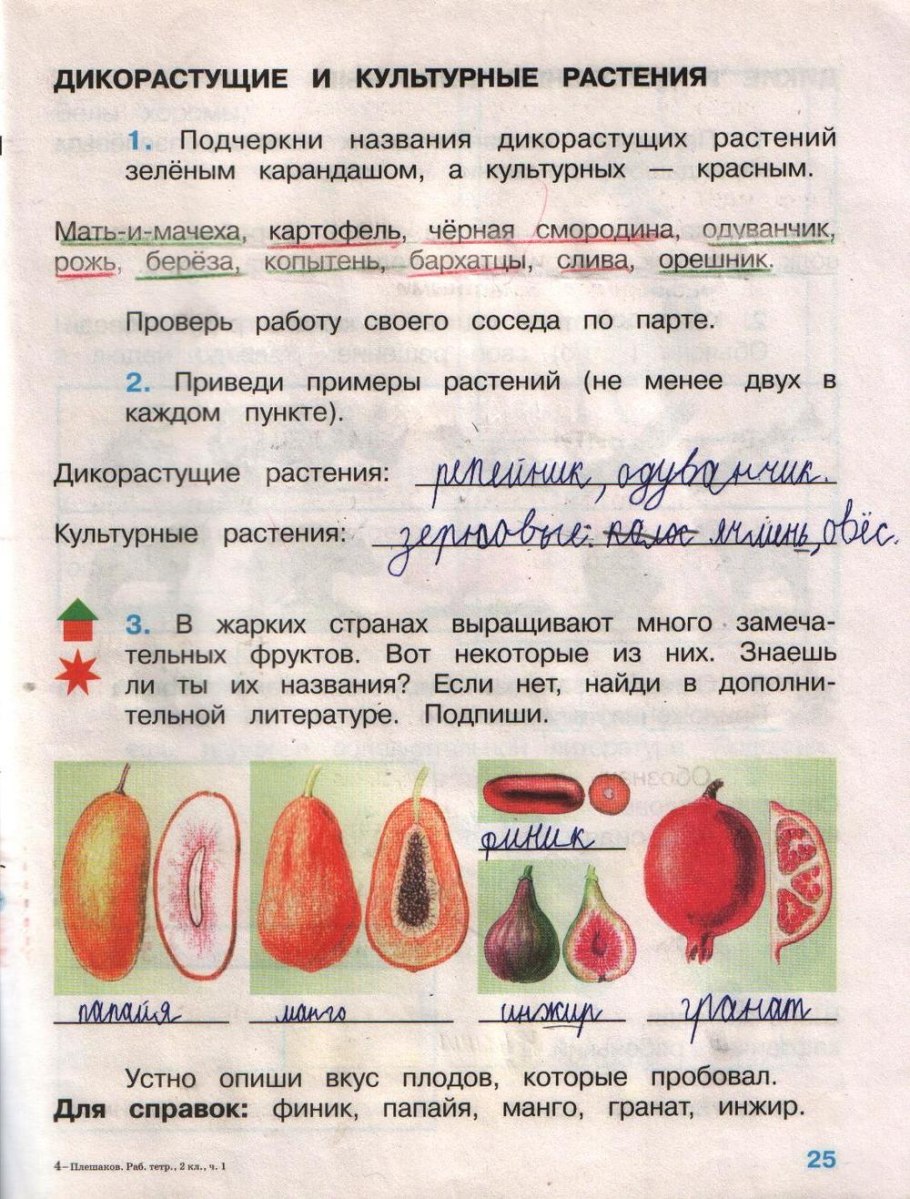 ДИКОРАСТУЩИЕ И КУЛЬТУРНЫЕ РАСТЕНИЯ
1. Подчеркни названия дикорастущих растений
зелёным карандашом, а культурных — красным.
Мать-и-мачеха, картофель, чёрная смородина, одуванчик,
рожь, берёза, копытень, бархатцы, слива, орешник.
Проверь работу своего соседа по парте.
2. Приведи примеры растений (не менее двух в
каждом пункте).
Дикорастущие растения: репейник, одуванчик.
Культурные растения: зерновые: колос ячмень, овёс.
3. В жарких странах выращивают много замеча-
тельных фруктов. Вот некоторые из них. Знаешь
ли ты их названия? Если нет, найди в дополни-
тельной литературе. Подпиши.
финик
папайя манго инжир гранат
Устно опиши вкус плодов, которые пробовал.
Для справок: финик, папайя, манго, гранат, инжир.
4–Плешаков. Раб. тетр., 2 кл., ч. 1
25